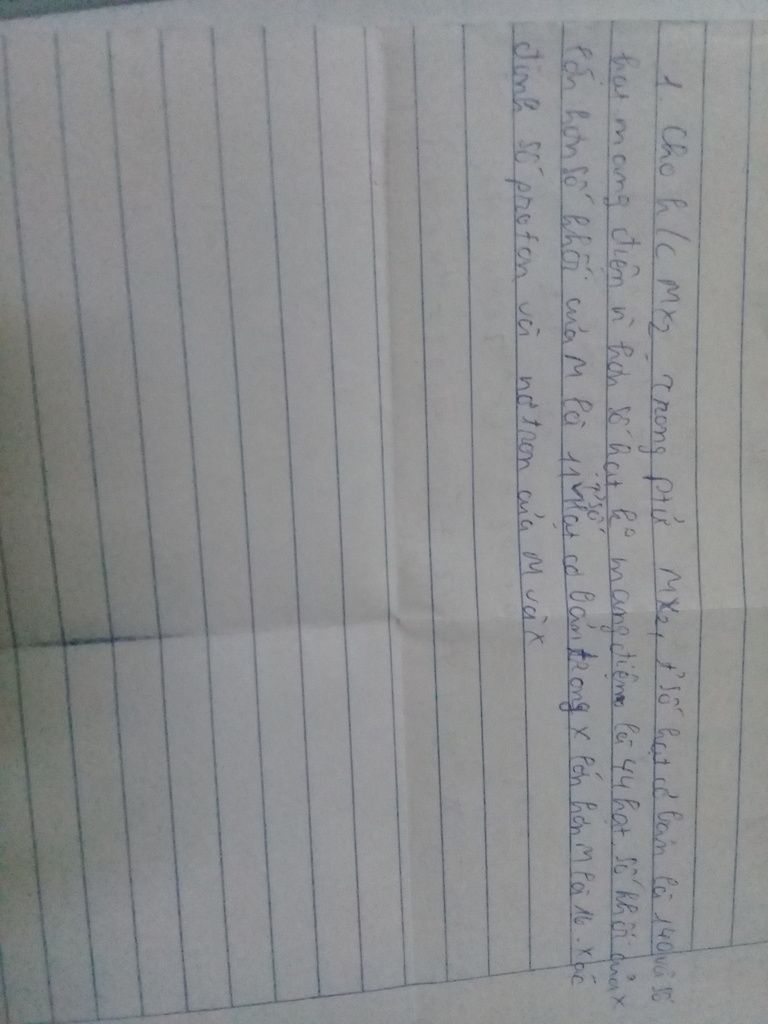 1. Cho h/c MX2. Trong ptử MX2, t² số hạt cơ bản là 140 và số
hạt mang điện n² hơn số hạt ko mang điện là 44 hạt. Số khối của X
lớn hơn số khối của M là 11. T² số hạt cơ bản trong X lớn hơn M là 16. Xác
định số proton và nơtron của M và X